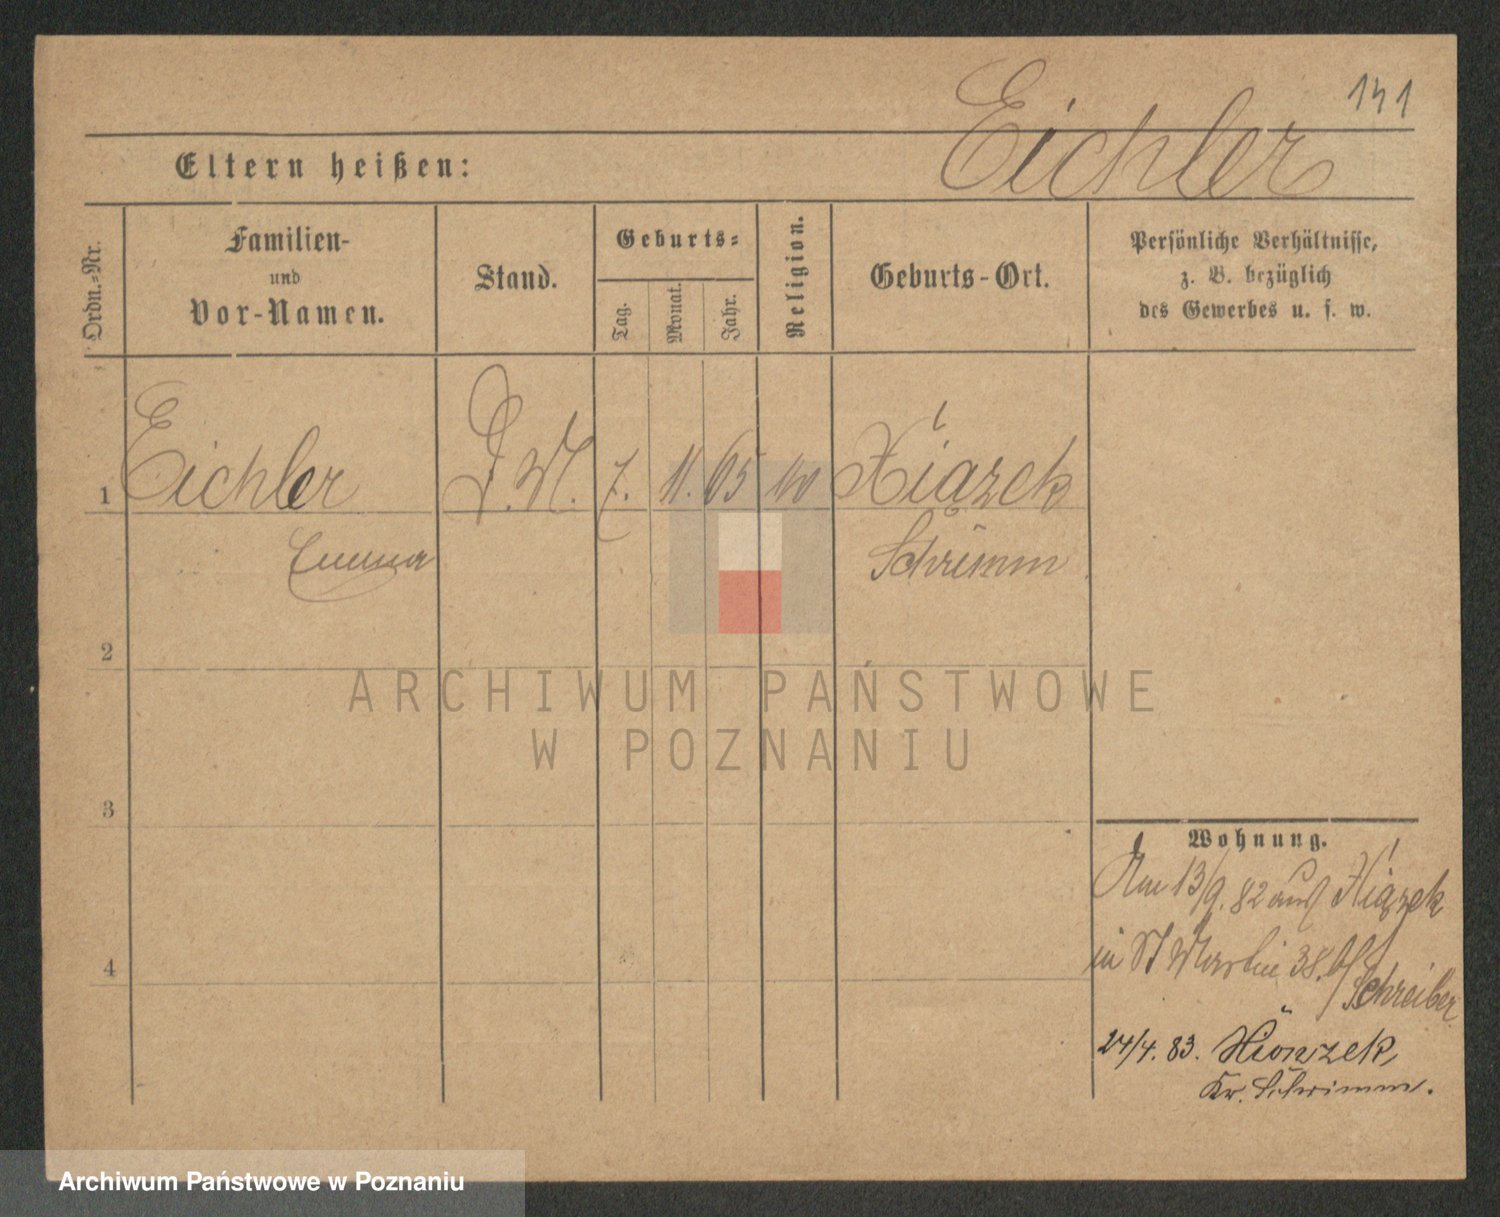 141
Eichler
Eltern heißen:
Ordn.=Nr.
Familien-
und
Vor-Namen.
Stand.
Geburts=
Tag.
Monat.
Jahr.
Religion.
Geburts-Ort.
Persönliche Verhältnisse,
z. B. bezüglich
des Gewerbes u. s. w.
1 Eichler D. M. 7. 11. 65 Xiązek
Emma Schrimm
2
3
4
ARCHIWUM PAŃSTWOWE
W POZNANIU
Wohnung.
Am 13/9. 82 aus Xiązek
in St Martin 38. b/
Schreiber
24/4. 83. Xionzek,
Kr. Schrimm.
Archiwum Państwowe w Poznaniu